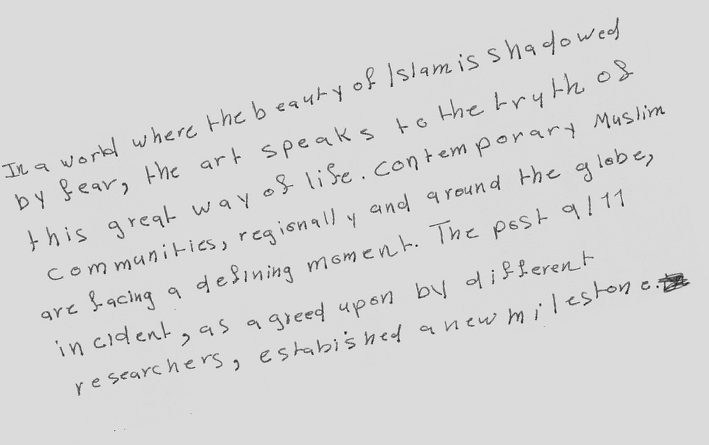 In a world where the beauty of Islam is shadowed
by fear, the art speaks to the truth of
this great way of life. Contemporary Muslim
communities, regionally and around the globe,
are facing a defining moment. The post 9/11
incident, as agreed upon by different
researchers, estabished a new milestone.